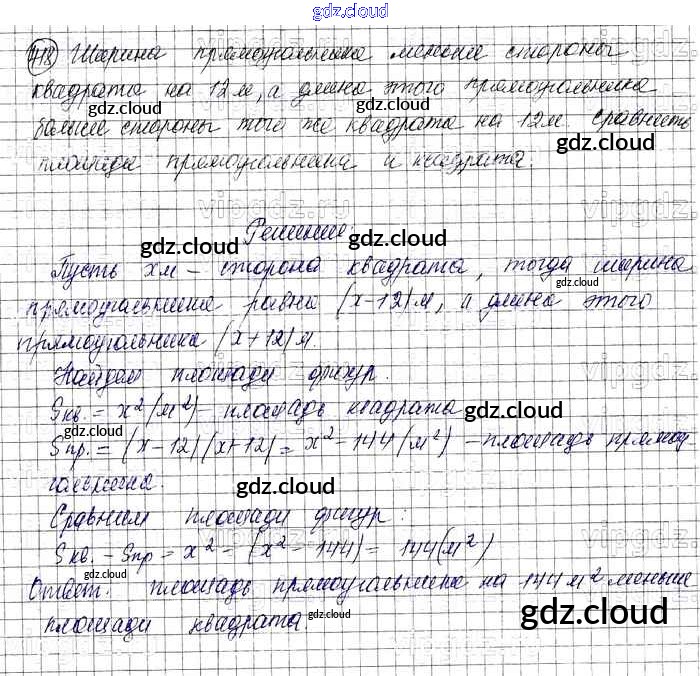 gdz.cloud
418 Ширина прямоугольника меньше стороны
квадрата на 12 м, а длина этого прямоугольника
больше стороны того же квадрата на 12м. Сравнить
площади прямоугольника и квадрата.
Решение
Пусть x м – сторона квадрата, тогда ширина
прямоугольника равна (x-12)м, а длина этого
прямоугольника (x+12)м.
Найдем площади фигур.
Sкв. = x²(м²) – площадь квадрата
Sпр. = (x-12)(x+12) = x²-144(м²) – площадь прямоу
гольника.
Сравним площади фигур:
Sкв. - Sпр = x² - (x² - 144) = 144(м²)
Ответ: площадь прямоугольника на 144 м² меньше
площади квадрата.
gdz.cloud
vipgdz.ru